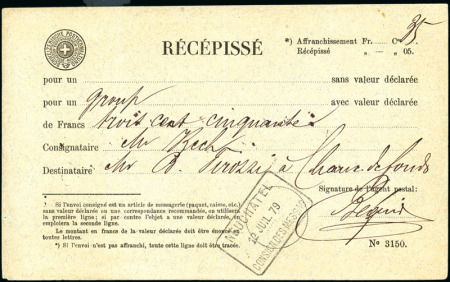 RÉCÉPISSÉ
*) Affranchissement Fr. C. 35
Récépissé „ — „ 05.
pour un sans valeur déclarée
pour un group avec valeur déclarée
de Francs trois cent cinquante
Consignataire Mr
Destinataire Mr à Chaux de fonds
Signature de l'agent postal:
Si l'envoi consigné est un article de messagerie (paquet, caisse, etc.)
sans valeur déclarée ou une correspondance recommandée, on utilisera
la première ligne; si par contre l'objet a une valeur déclarée, on
emploiera la seconde ligne.
Le montant en francs de la valeur déclarée doit être énoncé en
toutes lettres.
*) Si l'envoi n'est pas affranchi, toute cette ligne doit être tracée.
NEUCHATEL
JUIL. 79
No 3150.